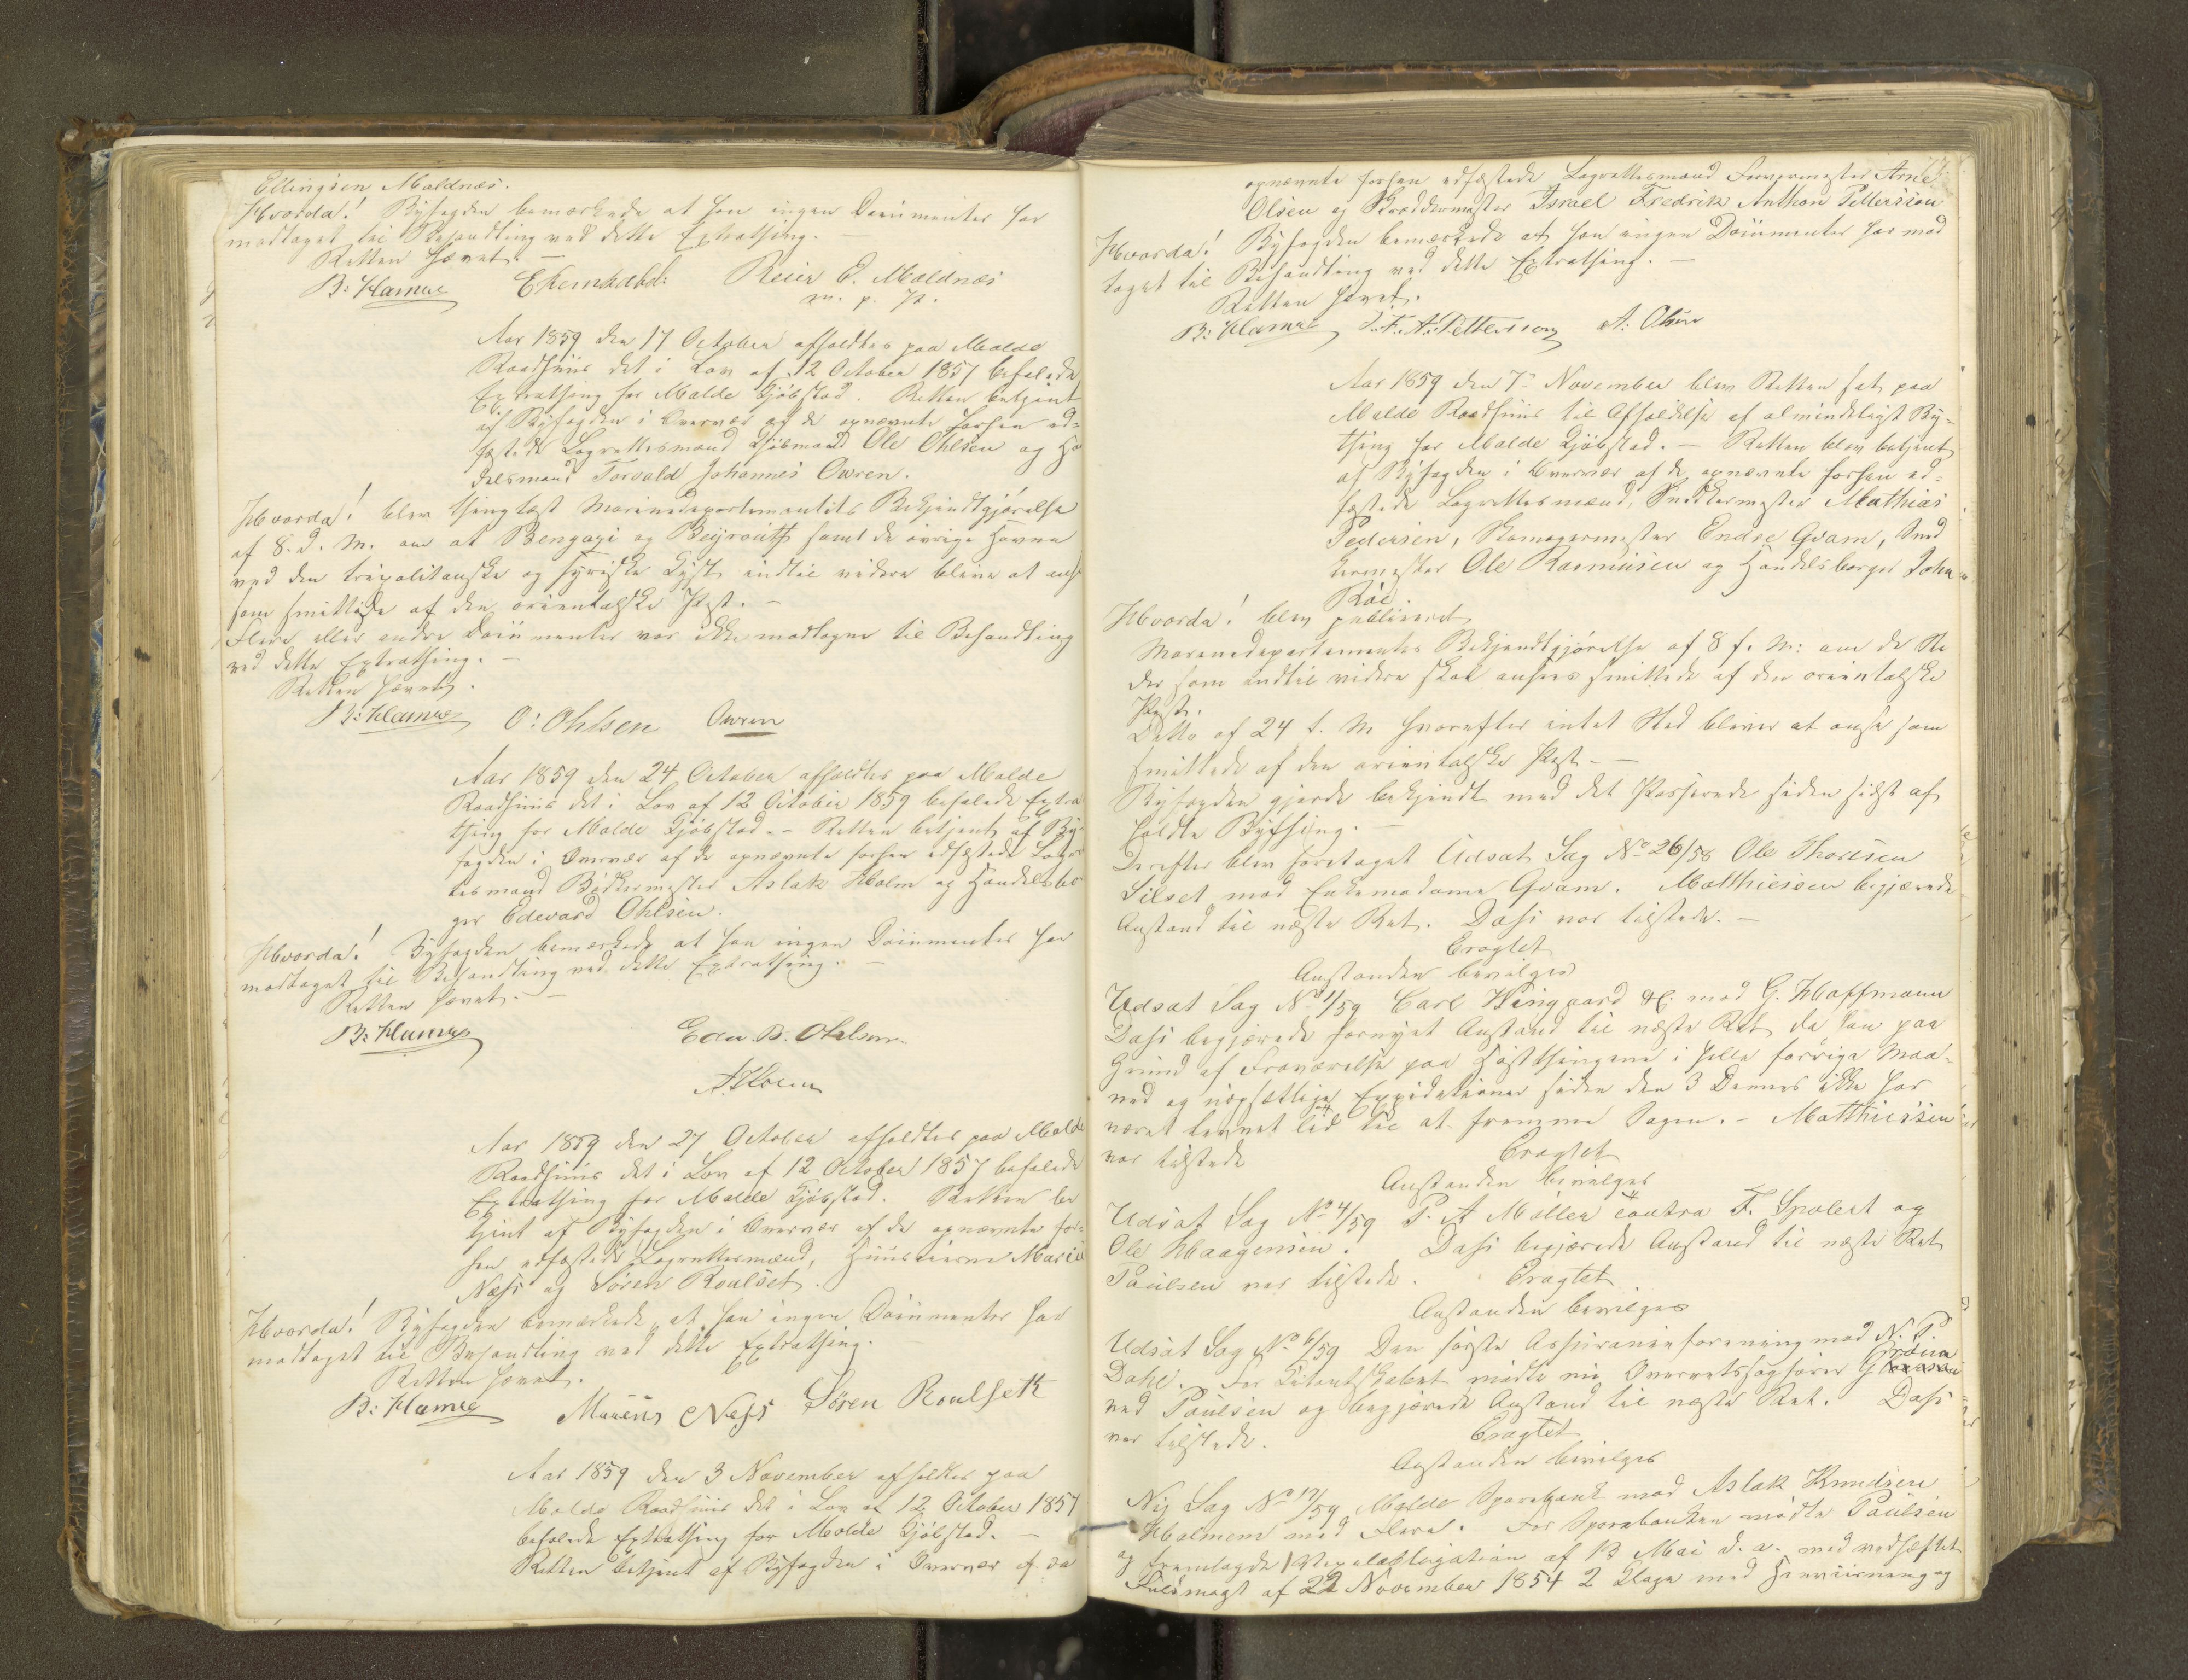 Ellingsen Moldnæs.
Hvorda! Byfogden bemærkede at han ingen Documenter har
modtaget til Behandling ved dette Extrathing. —
Retten hævet. —
B: Hamre Reier E. Moldnæs
m. p. P.
Aar 1859 den 17 October afholdtes paa Molde
Raadhuus det i Lov af 12 October 1857 befalede
Extrathing for Molde Kjøbstad. Retten betjent
af Byfogden i Overvær af de opnævnte forhen ed=
fæstede Lagrettesmænd Kjøbmand Ole Ohlsen og Han
delsmand Torvald Johannes Owren.
Hvorda! blev thinglæst Marinedepartementets Bekjendtgjørelse
af 8. d. M. om at Bengazi og Beyrouth samt de øvrige Havne
ved den tripolitanske og syriske Kyst indtil videre blive at anse
som smittede af den orientalske Pest. —
Flere eller andre Documenter var ikke modtagne til Behandling
ved dette Extrathing. —
Retten hævet.
B: Hamre O: Ohlsen Owren
Aar 1859 den 24 October afholdtes paa Molde
Raadhuus det i Lov af 12 October 1859 befalede Extra
thing for Molde Kjøbstad. — Retten betjent af By=
fogden i Overvær af de opnævnte forhen edfæstede Lagret
tesmænd Bødkermester Aslak Holm og Handelsbor
ger Edevard Ohlsen.
Hvorda! Byfogden bemærkede at han ingen Documenter har
modtaget til Behandling ved dette Extrathing. —
Retten hævet. —
B: Hamre Edv. B. Ohlsen
A. Holm
Aar 1859 den 27 October afholdtes paa Molde
Raadhuus det i Lov af 12 October 1857 befalede
Extrathing for Molde Kjøbstad. Retten be
tjent af Byfogden i Overvær af de opnævnte for=
hen edfæstede Lagrettesmænd, Huuseierne
Næss og Søren Roalset.
Hvorda! Byfogden bemærkede at han ingen Documenter har
modtaget til Behandling ved dette Extrathing.
Retten hævet.
B: Hamre Næss Søren Roulseth
Aar 1859 den 3 November afholdtes paa
Molde Raadhuus det i Lov af 12 October 1857
befalede Extrathing for Molde Kjøbstad. —
Retten betjent af Byfogden i Overvær af de
opnævnte forhen edfæstede Lagrettesmænd Farvermester Arne
Olsen og Skræddermester Israel Fredrik Anthon Pettersson
Hvorda! Byfogden bemærkede at han ingen Documenter har mod
taget til Behandling ved dette Extrathing. —
Retten hævet.
B: Hamre I. F. A. Pettersson A. Olsen
Aar 1859 den 7de November blev Retten sat paa
Molde Raadhuus til Afholdelse af almindeligt By=
thing for Molde Kjøbstad. — Retten blev betjent
af Byfogden i Overvær af de opnævnte forhen ed=
fæstede Lagrettesmænd, Snedkermester Mathias
Pedersen, Skomagermester Endre Gvam, Sned
kermester Ole Rasmusen og Handelsborger John
Röe.
Hvorda! blev publiceret
Marinedepartementets Bekjendtgjørelse af 8 f. M: om de Ste
der som indtil videre skal ansees smittede af den orientalske
Pest.
Ditto af 24 f. M hvorefter intet Sted bliver at anse som
smittede af den orientalske Pest. —
Byfogden gjorde bekjendt med det Passerede siden sidst af
holdte Bything. —
Derefter blev foretaget Udsat Sag No 26/58 Ole Thoresen
Silset mod Enkemadame Gvam. Matthiessen begjærede
Anstand til næste Ret. Dahl var tilstede. —
Eragtet
Anstanden bevilges
Udsat Sag No 1/59 Carl Wingaard &c. mod G. Hoffmann
Dahl begjærede fornyet Anstand til næste Ret da han paa
Grund af Fraværelse paa Høstthingene i hele forrige Maa=
ned og uopsættlige Expeditioner siden den 3 Dennes ikke har
været levnet Tid til at fremme Sagen. — Matthiessen
var tilstede Eragtet
Anstanden bevilges
Udsat Sag No 4/59 P. A Møller contra F. Spolert og
Ole Haagensen. Dahl begjærede Anstand til næste Ret
Paulsen var tilstede. Eragtet
Anstanden bevilges
Udsat Sag No 6/59 Den første Assuranceforening mod N. P.
Dahl. For Citantskabet mødte nu Overretssagfører
ved Paulsen og begjærede Anstand til næste Ret. Dahl
var tilstede. Eragtet
Anstanden bevilges
Ny Sag No 12/59 Molde Sparebank mod Aslak Knudsen
Holmem med Flere. For Sparebanken mødte Paulsen
og fremlagde 1 Vexelobligation af 13 Mai d. a. med vedhæftet
Fuldmagt af 22 November 1854 2 Klage med Henviisning og